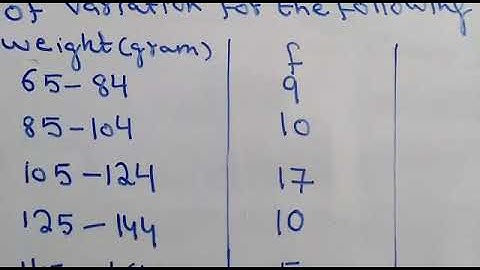 of variation for the following
weight(gram) f
65-84 9
85-104 10
105-124 17
125-144 10